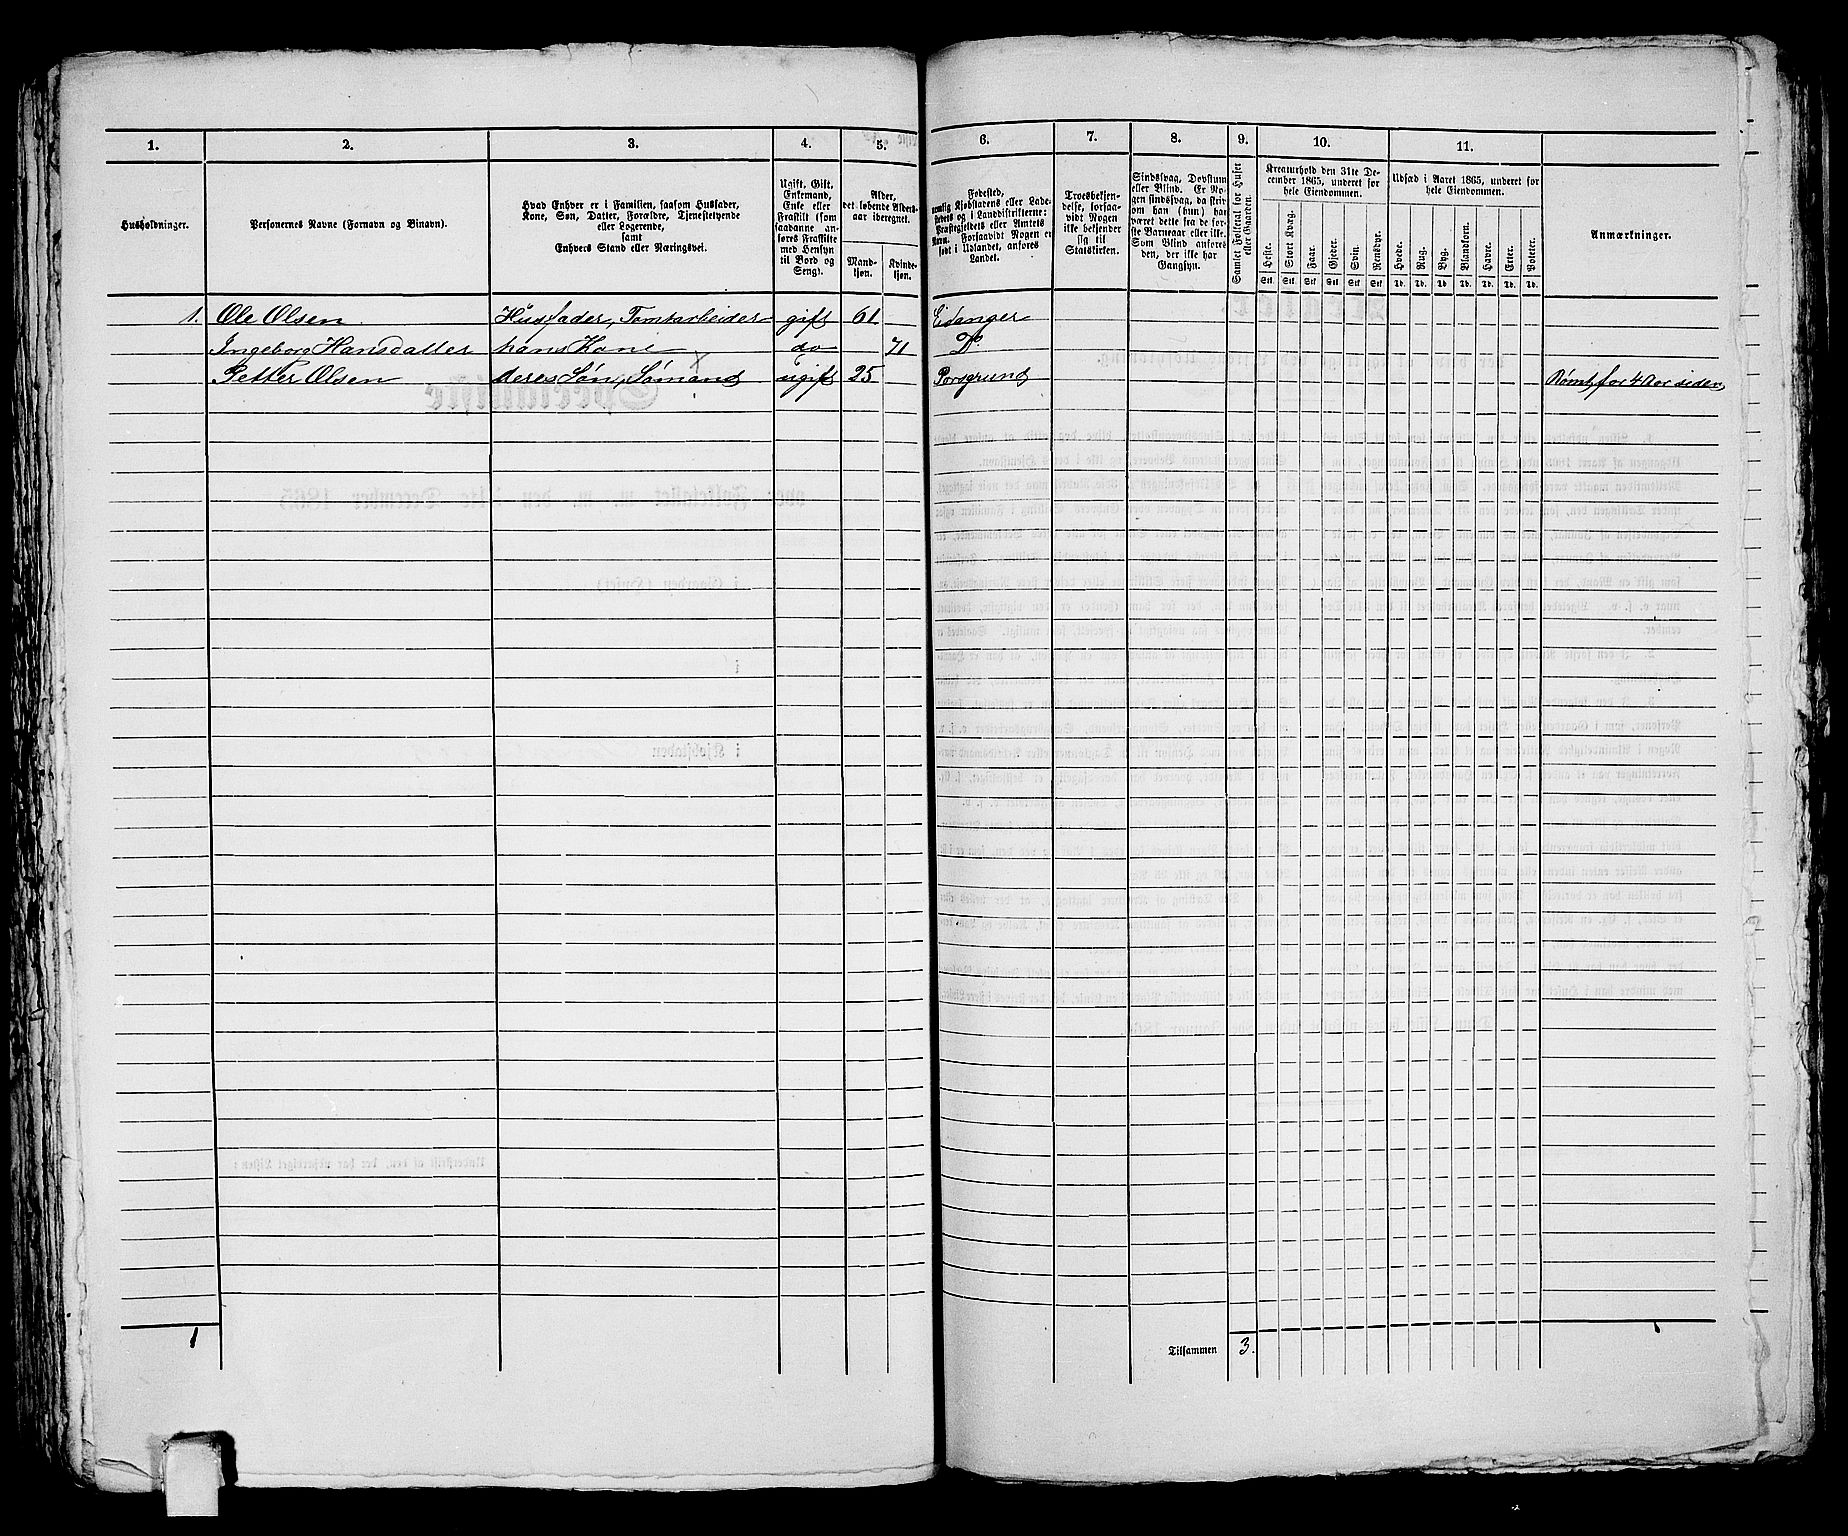 1. 2. 3. 4. 5. 6. 7. 8. 9. 10. 11.
Husholdninger.
Personernes Navne (Fornavn og Binavn).
Hvad Enhver er i Familien, saasom Husfader,
Kone, Søn, Datter, Forældre, Tjenestetyende
eller Logerende,
samt
Enhvers Stand eller Næringsvei.
Ugift, Gift,
Enkemand,
Enke eller
Fraskilt (som
saadanne an-
føres Fraskilte
med Hensyn
til Bord og
Seng).
Alder,
det løbende Alders-
aar iberegnet.
Mand-
kjøn.
Kvinde-
kjøn.
Fødested,
nemlig Kjøbstadens eller Lade-
stedets og i Landdistrikterne:
Præstegjeldets eller Amtets
Navn. Forsaavidt Nogen er
født i Udlandet, anføres
Landet.
Troesbekjen-
delse, forsaa-
vidt Nogen
ikke bekjender
sig til
Statskirken.
Sindssvag, Døvstum
eller Blind. Er No-
gen sindssvag, da skri-
ves om han (hun) har
været dette fra de før-
ste Barneaar eller ikke.
Som Blind anføres
den, der ikke har
Gangsyn.
Samlet Folketal for Huset
eller Gaarden.
Kreaturhold den 31te De-
cember 1865, underet for
hele Eiendommen.
Heste. Stort Kvæg. Faar. Gjeder. Svin. Rensdyr.
Stk. Stk. Stk. Stk. Stk. Stk.
Udsæd i Aaret 1865, underet for
hele Eiendommen.
Hvede. Rug. Byg. Blandkorn. Havre. Erter. Poteter.
Td. Td. Td. Td. Td. Td. Td.
Anmærkninger.
1. Ole Olsen Husfader, Tomtarbeider gift 61 Eidanger
Ingeborg Hansdatter hans Kone do 71 Do.
Petter Olsen deres Søn, Sømand ugift 25 Porsgrund Rømt, for 4 Aar siden
1 Tilsammen 3.